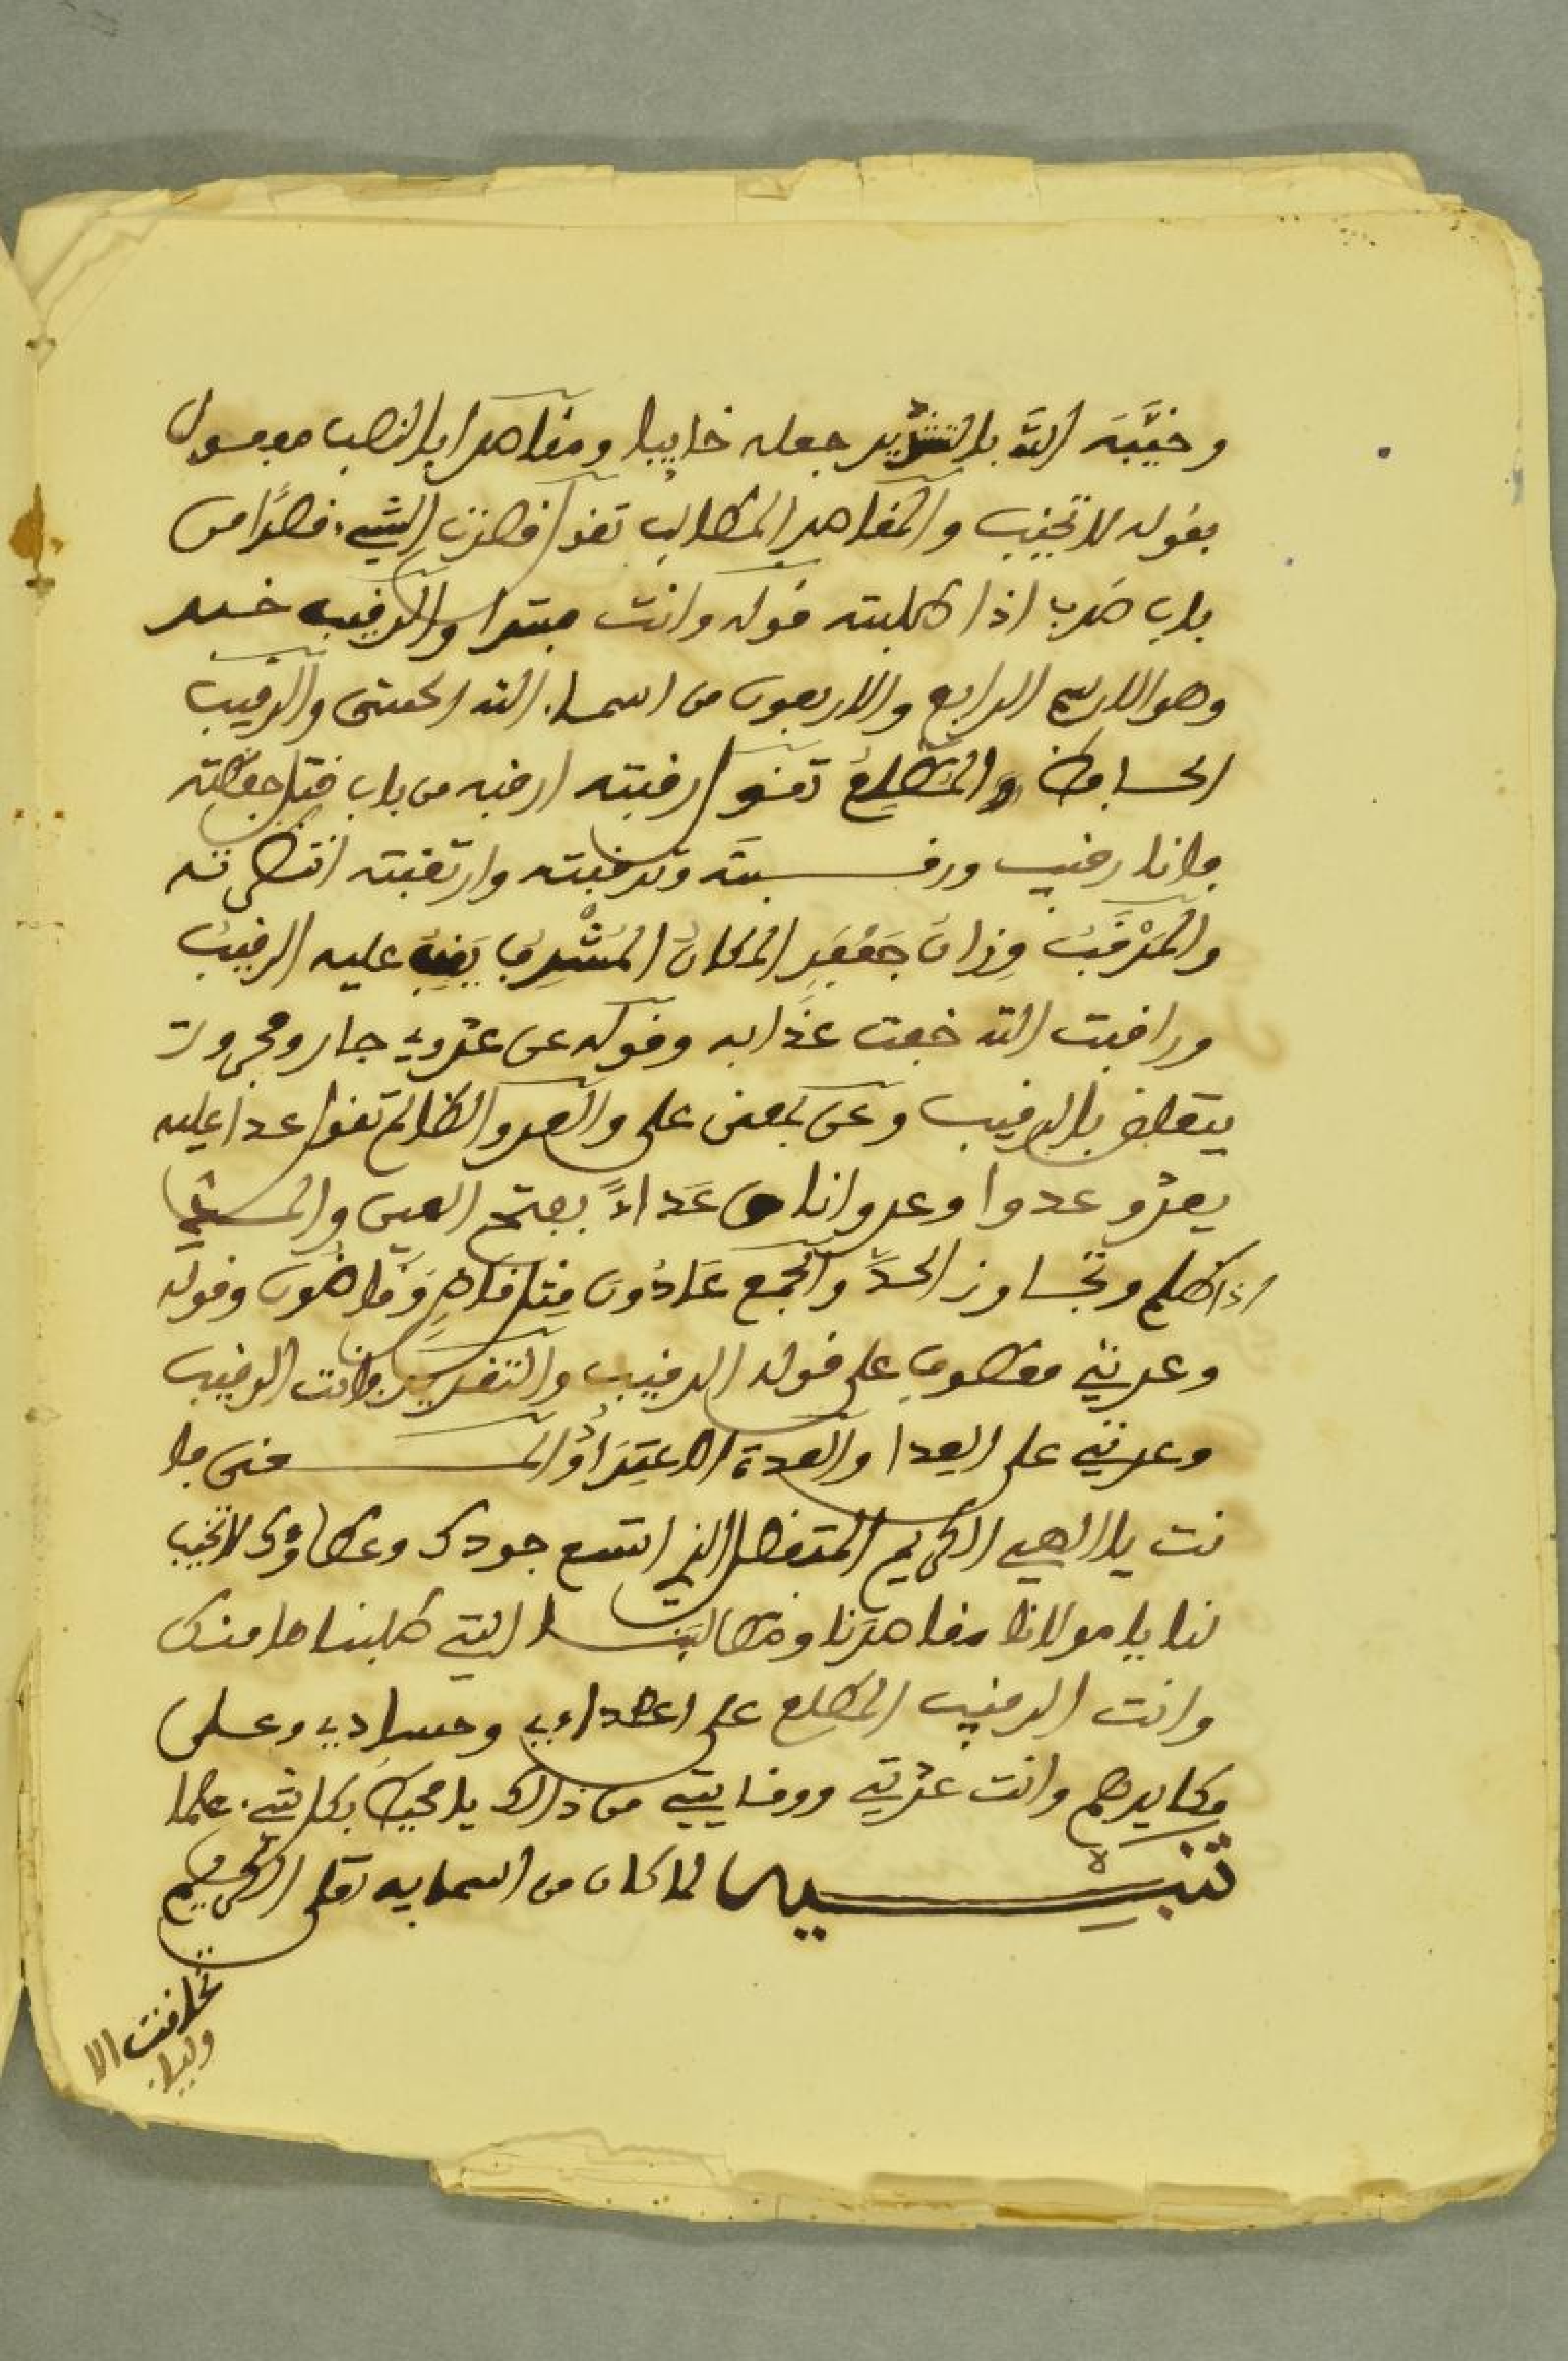 وخيَّبَه اللّه بالتشديد جعله خايبا ومقاصدا بالنصب مفعول
بقوله لا تخيب والمقاصد المطالب تقول قصدت الشيء قصدًا من
باب ضرب اذا طلبته قوله وانت مبتدا والرقيب خبر
وهو الاسم الرابع والاربعون من اسماء الله الحسنى والرقيب
الحافظ والمطّلِعُ تقول رقبته ارقبه من باب قتل حفظته
فانا رقيب ورقبته وترقبته وارتقبته انتظرته
والمَرْقَبُ وِزانُ جَعْفَرٍ المكانُ المُشْرِفُ يَقِفُ عليه الرقيبُ
وراقبت الله خفت عَذَابه وقوله عن عدوي جار ومجرور
يتعلق بالرقيب وعن بمعنى على والعدو الظالم تقول عدا عليه
يعدُو عدوا وعدوانا وعَدَاءً بفتح العين والمد
اذا ظلم وتجاوز الحدَّ والجمع عَادُونَ مِثل قاضٍ وَقَاضُونَ وقوله
وعدتي معطوف على قوله الرقيب والتقدير وانت الرقيب
وعدتي على العدا والعدة الاعتدادُ والمعنى فا
نت يا الهي الكريم المتفضل الذي اتسع جودك وعطاؤك لا تخيب
لنا يا مولانا مقاصدَنا ومطالبَنا التي طلبناها منك
وانت الرقيب المطلع على اعداءي وحسادي وعلى
مكايدهم وانت عدتي ووقايتي من ذالك يا محيط بكل شيء علما
تنبيه لما كان من اسمايه تعلى الكريم